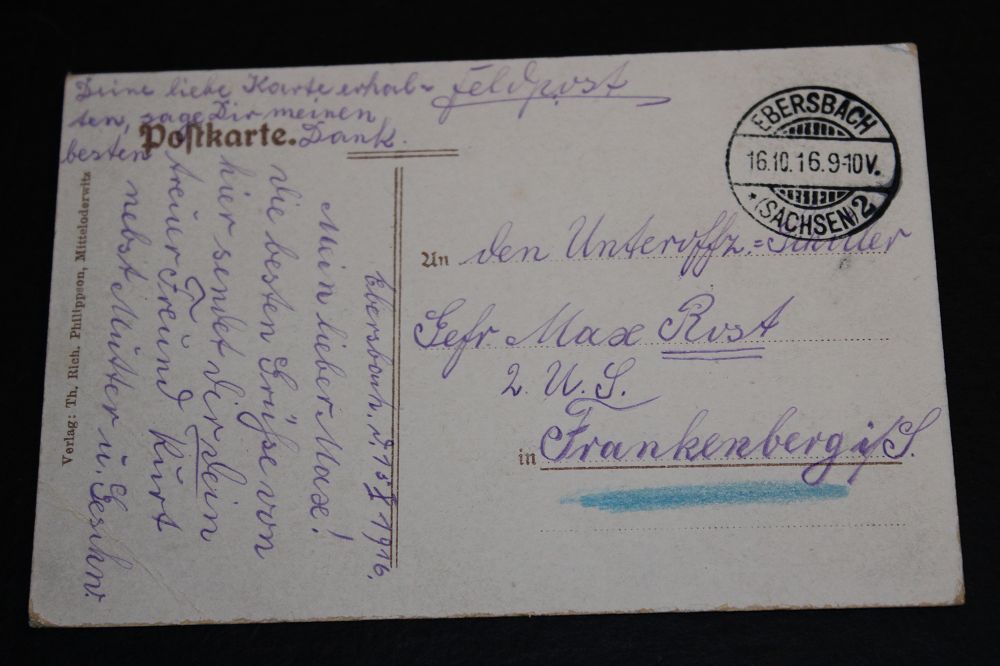 Deine liebe Karte erhal-
ten, sage Dir meinen
besten Dank.
Feldpost
Postkarte.
EBERSBACH
16.10.16.9-10V.
* (SACHSEN) 2
Verlag: Th. Rich. Philippson, Mitteloderwitz
Ebersbach, d. 15. X 1916.
Mein lieber Max!
Die besten Grüße von
hier sendet Dir Dein
treuer Freund Kurt
nebst Mutter u. Geschw.
An den Unteroffz.=Schüler
Gefr Max Rost
2. U. S.
in Frankenberg i/S.